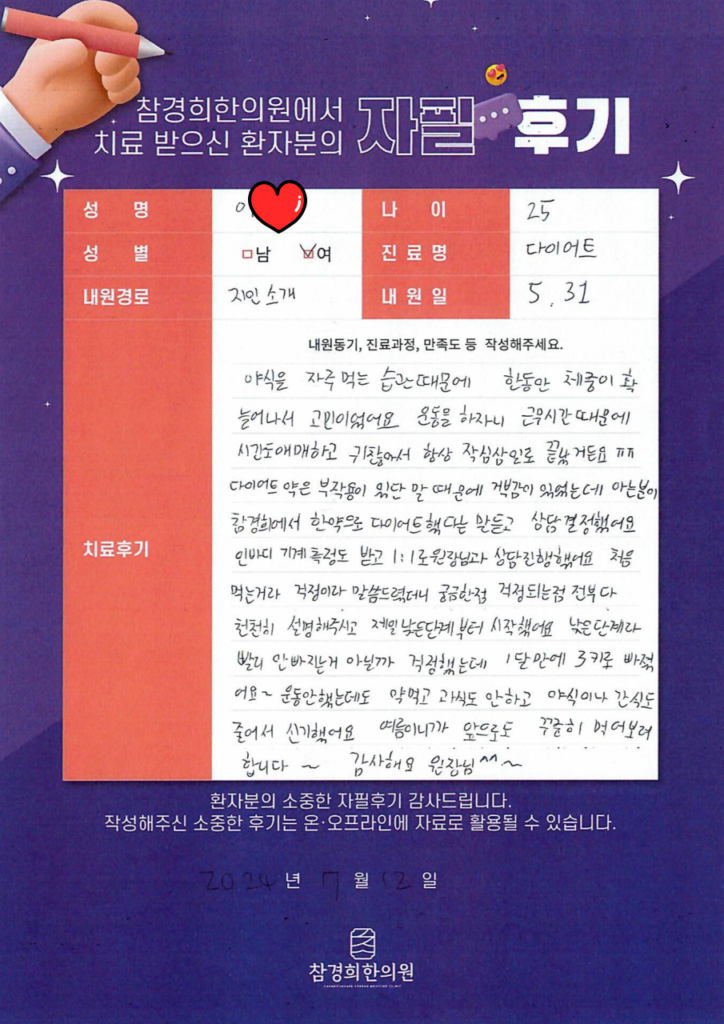 참경희한의원에서
치료 받으신 환자분의 자필 후기
성 명 이
나 이 25
성 별 □남 ☑여
진료명 다이어트
내원경로 지인 소개
내원일 5. 31
내원동기, 진료과정, 만족도 등 작성해주세요.
치료후기
야식을 자주 먹는 습관때문에 한동안 체중이 확
늘어나서 고민이었어요 운동을 하자니 근무시간 때문에
시간도애매하고 귀찮아서 항상 작심삼일로 끝났거든요 ㅠㅠ
다이어트 약은 부작용이 있단 말 때문에 거부감이 있었는데 아는분이
참경희에서 한약으로 다이어트했다는 말듣고 상담결정했어요
인바디 기계 측정도 받고 1:1로 원장님과 상담진행했어요 처음
먹는거라 걱정이라 말씀드렸더니 궁금한점 걱정되는점 전부 다
천천히 설명해주시고 제일낮은단계부터 시작했어요 낮은단계라
빨리 안빠지는거 아닐까 걱정했는데 1달만에 3키로 빠졌
어요~ 운동안했는데도 약먹고 과식도 안하고 야식이나 간식도
줄어서 신기했어요 여름이니까 앞으로도 꾸준히 먹어보려
합니다 ~ 감사해요 원장님^^~
환자분의 소중한 자필후기 감사드립니다.
작성해주신 소중한 후기는 온·오프라인에 자료로 활용될 수 있습니다.
2024 년 7 월 12 일
참경희한의원